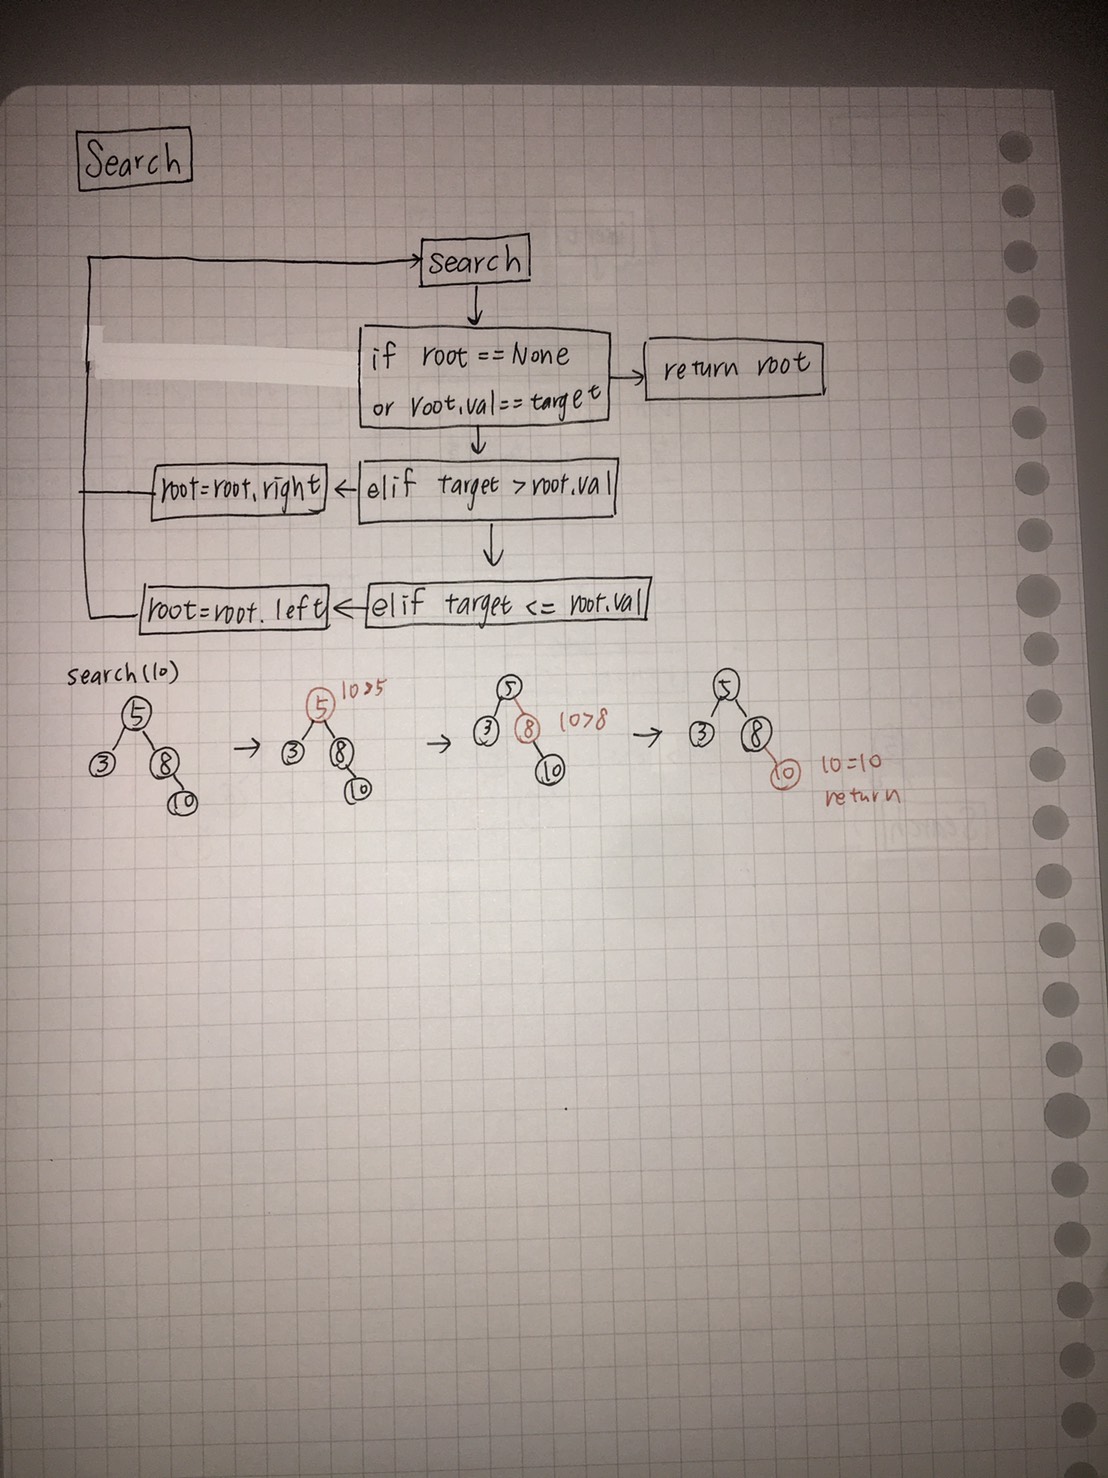 Search
search
if root == None
or root.val == target
return root
elif target > root.val
root=root.right
elif target <= root.val
root=root.left
search(10)
5
3
8
10
5 10>5
3
8
10
5
3
8 10>8
10
5
3
8
10 10=10
return